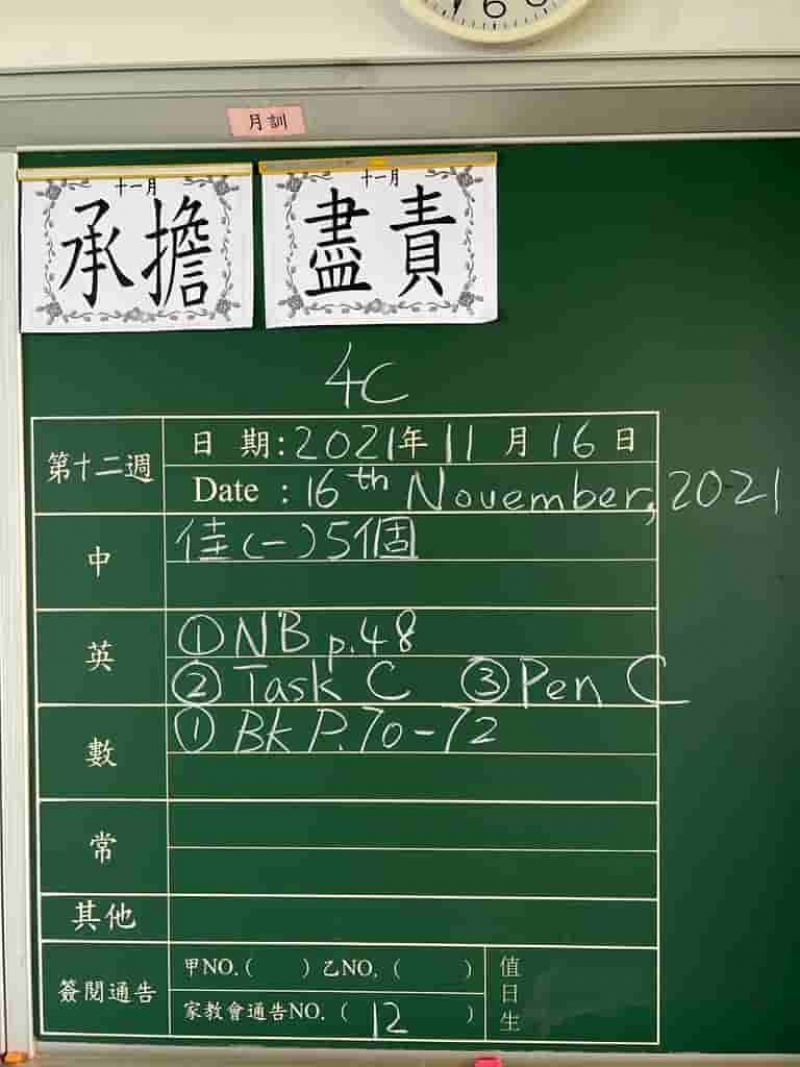 6
月訓
十一月
承擔
十一月
盡責
4C
第十二週
日 期:2021年11月16日
Date : 16th November, 2021
中
佳(一)5個
英
①NB p.48
②Task C ③Pen C
數
① BK P.70-72
常
其他
簽閱通告
甲NO.( ) 乙NO. ( )
家教會通告NO. ( 12 )
值日生